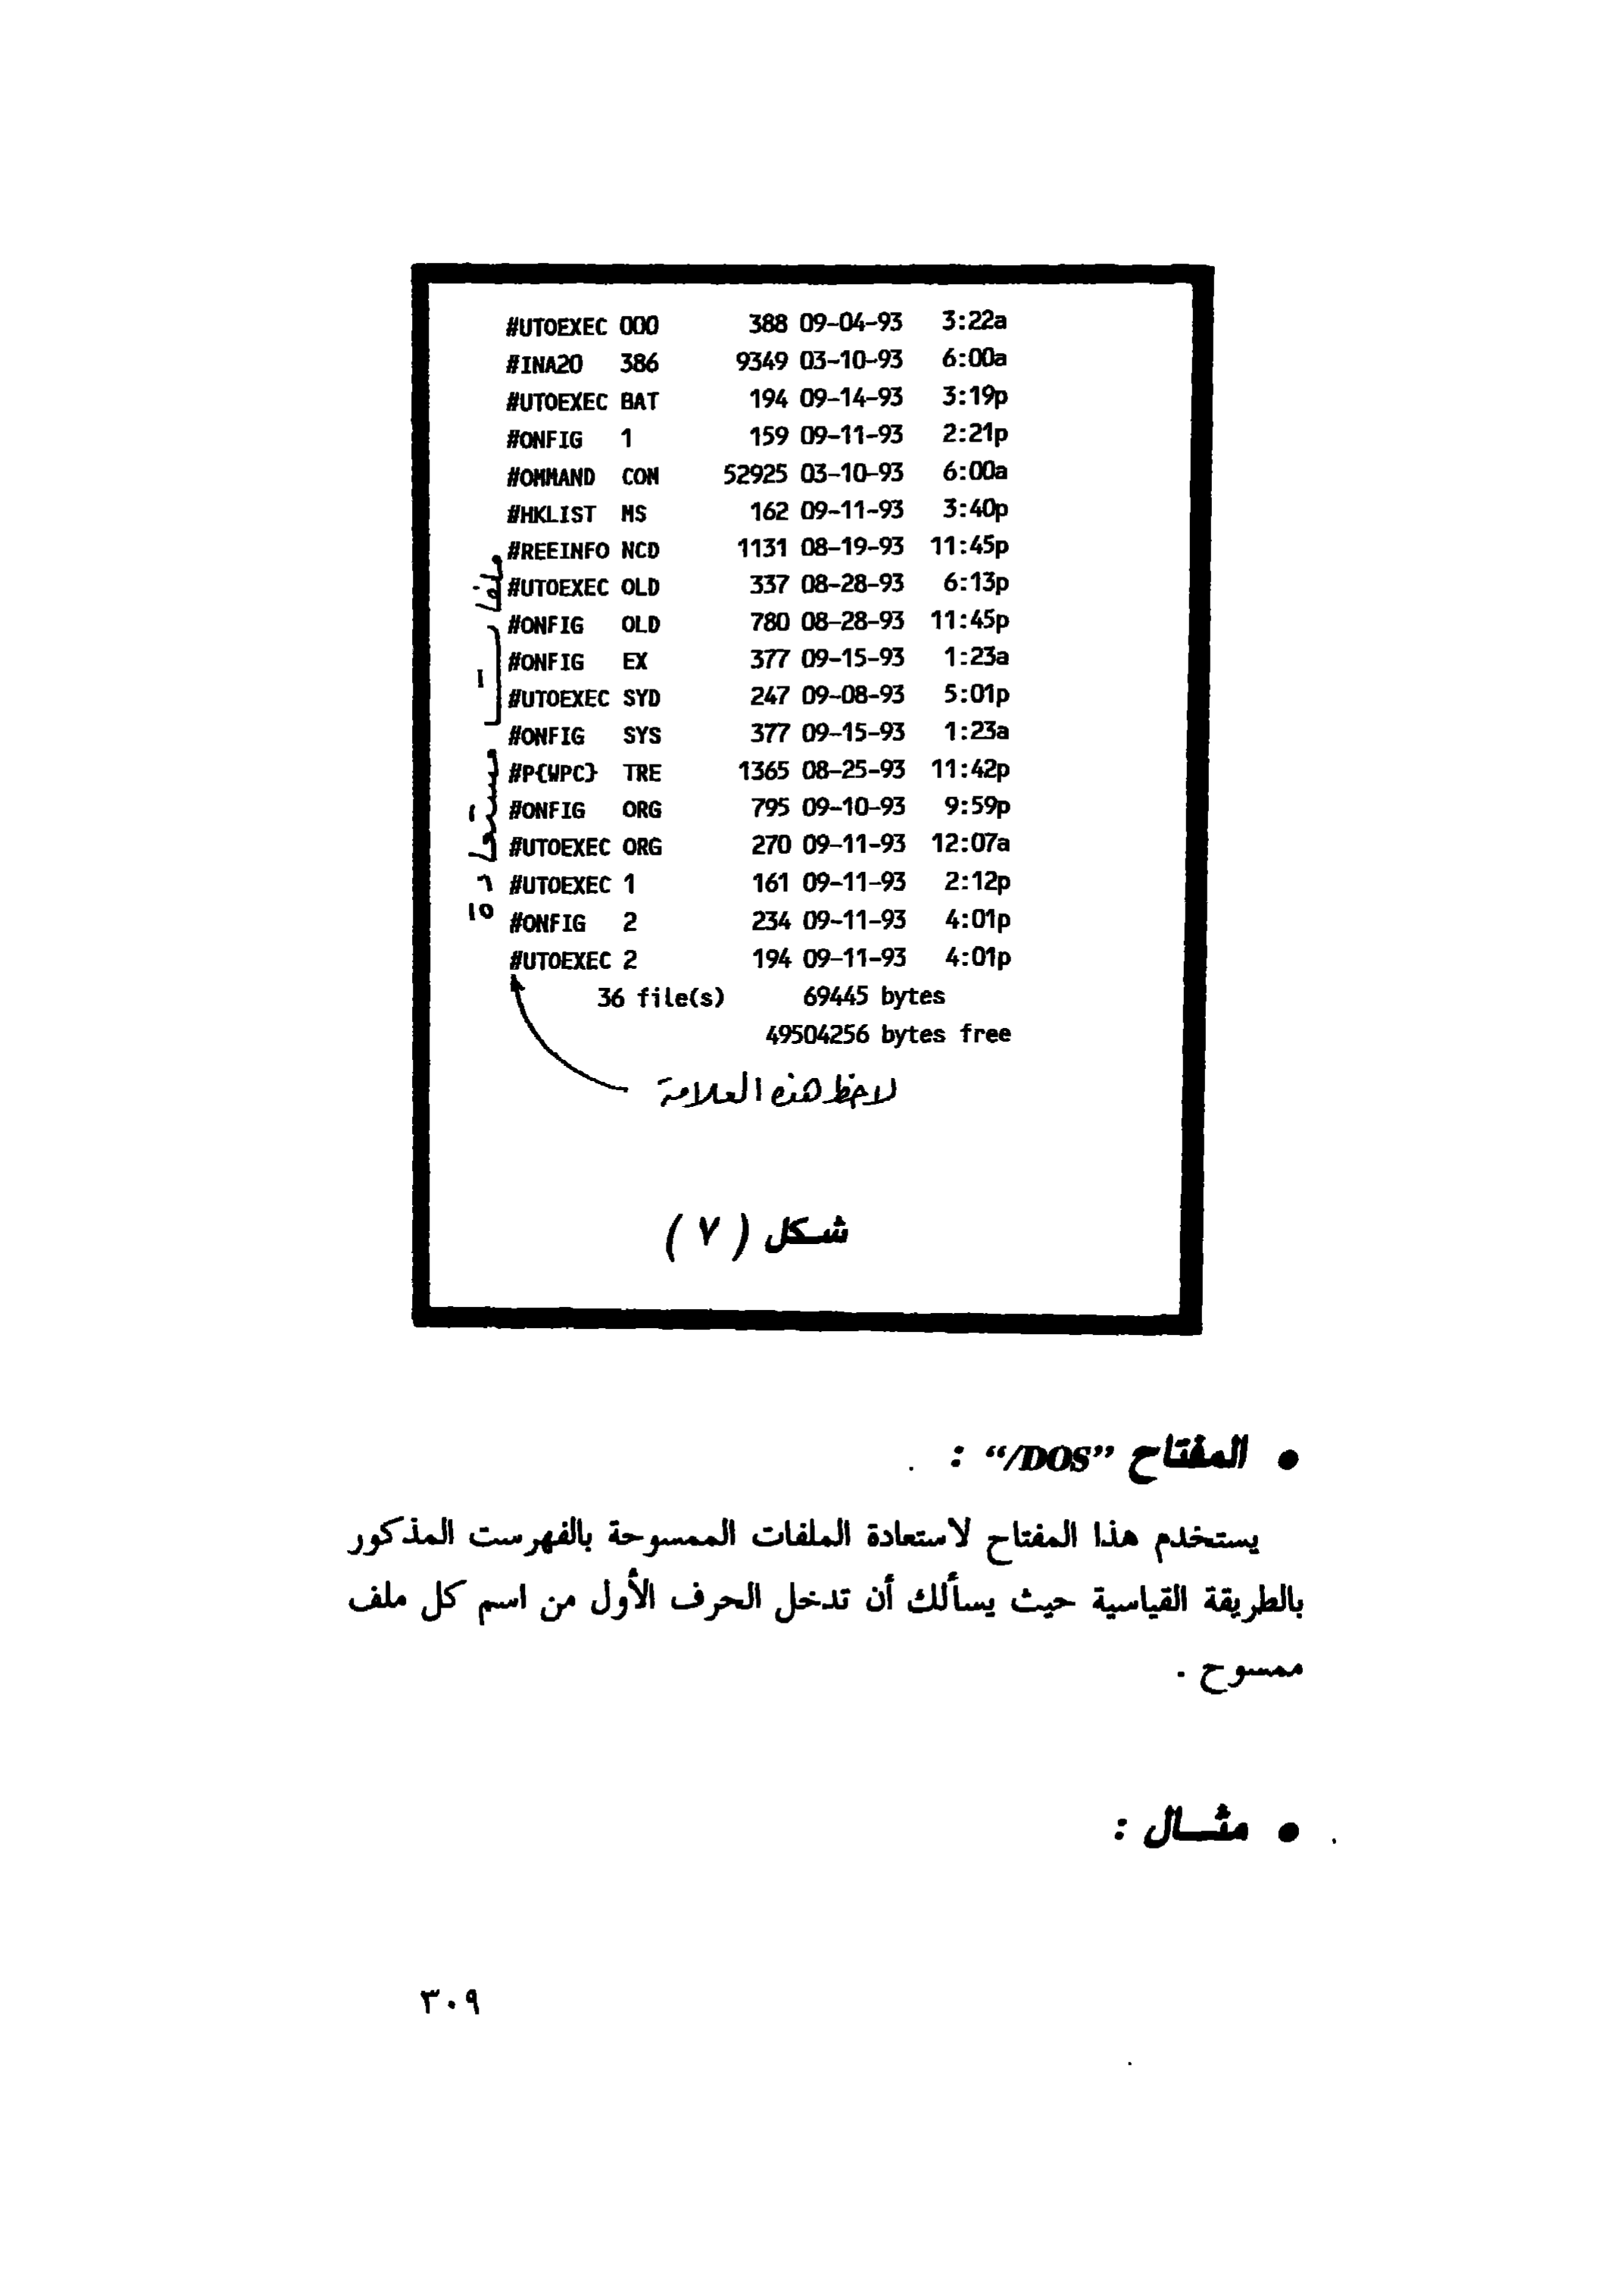 #UTOEXEC 000 388 09-04-93 3:22a
#INA20 386 9349 03-10-93 6:00a
#UTOEXEC BAT 194 09-14-93 3:19p
#ONFIG 1 159 09-11-93 2:21p
#OMMAND COM 52925 03-10-93 6:00a
#HKLIST MS 162 09-11-93 3:40p
#REEINFO NCD 1131 08-19-93 11:45p
#UTOEXEC OLD 337 08-28-93 6:13p
#ONFIG OLD 780 08-28-93 11:45p
#ONFIG EX 377 09-15-93 1:23a
#UTOEXEC SYD 247 09-08-93 5:01p
#ONFIG SYS 377 09-15-93 1:23a
#P{WPC} TRE 1365 08-25-93 11:42p
#ONFIG ORG 795 09-10-93 9:59p
#UTOEXEC ORG 270 09-11-93 12:07a
#UTOEXEC 1 161 09-11-93 2:12p
#ONFIG 2 234 09-11-93 4:01p
#UTOEXEC 2 194 09-11-93 4:01p
36 file(s) 69445 bytes
49504256 bytes free
ملفات مستعادة
لاحظ هذه العلامة
شكل ( ٧ )
• المفتاح “/DOS” :
يستخدم هذا المفتاح لاستعادة الملفات الممسوحة بالفهرست المذكور
بالطريقة القياسية حيث يسألك أن تدخل الحرف الأول من اسم كل ملف
ممسوح .
• مثــال :
٣٠٩